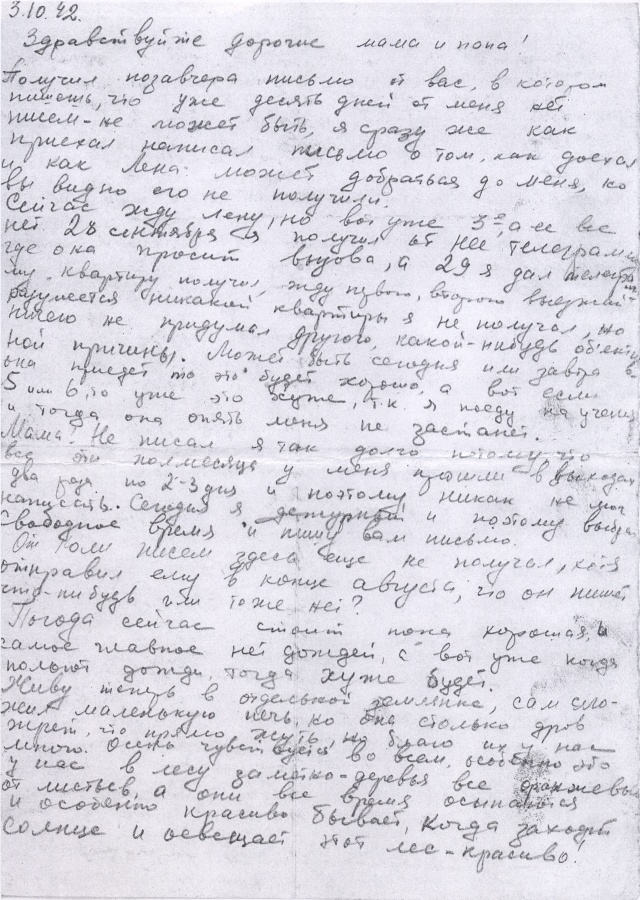 3.10.42.
Здравствуйте дорогие мама и папа!
Получил позавчера письмо от вас, в котором
пишешь, что уже десять дней от меня нет
писем - не может быть, я сразу же как
приехал написал письмо о том, как доехал
и как Лена может добраться до меня, но
вы видно его не получили.
Сейчас жду Лену, но вот уже 3е, а ее все
нет. 28 сентября я получил от нее телеграмму
где она просит вызова, а 29 я дал телеграм
му квартиру получил, жду первого, второго выезжай
разумеется никакой квартиры я не получал, но
ничего не придумал другого, какой-нибудь объектив
ной причины. Может быть сегодня или завтра
она приедет то это будет хорошо, а вот если
5 или 6, то уже это хуже, т.к. я поеду на учения
и тогда она опять меня не застанет.
Мама. Не писал я так долго потому что
все эти полмесяца у меня прошли в выходах
два раза по 2-3 дня и поэтому никак не мог
написать. Сегодня я дежурный и поэтому выбрал
свободное время и пишу вам письмо.
От Толи писем здесь еще не получал, хотя
отправил ему в конце августа, что он пишет
что-нибудь или тоже нет?
Погода сейчас стоит пока хорошая, и
самое главное нет дождей, а вот уже когда
польют дожди, тогда хуже будет.
Живу теперь в отдельной землянке, сам сло-
жил маленькую печь, но она столько дров
жрет, что прямо жуть, но благо их у нас
много. Осень чувствуется во всем, особенно это
у нас в лесу заметно - деревья все оранжевые
от листьев, а они все время осыпаются
и особенно красиво бывает, когда заходит
солнце и освещает этот лес - красиво!